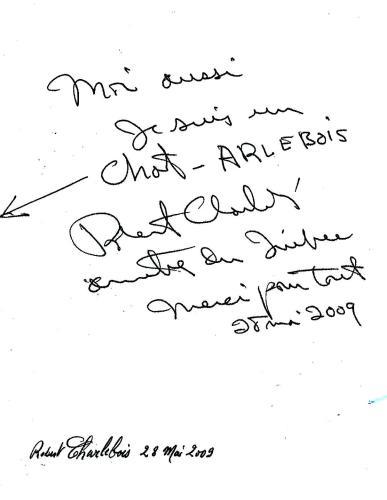 Moi aussi
Je suis un
Chat-ARLEBOIS
Robert Charlebois
du Québec
Merci pour tout
28 mai 2009
Robert Charlebois 28 Mai 2009